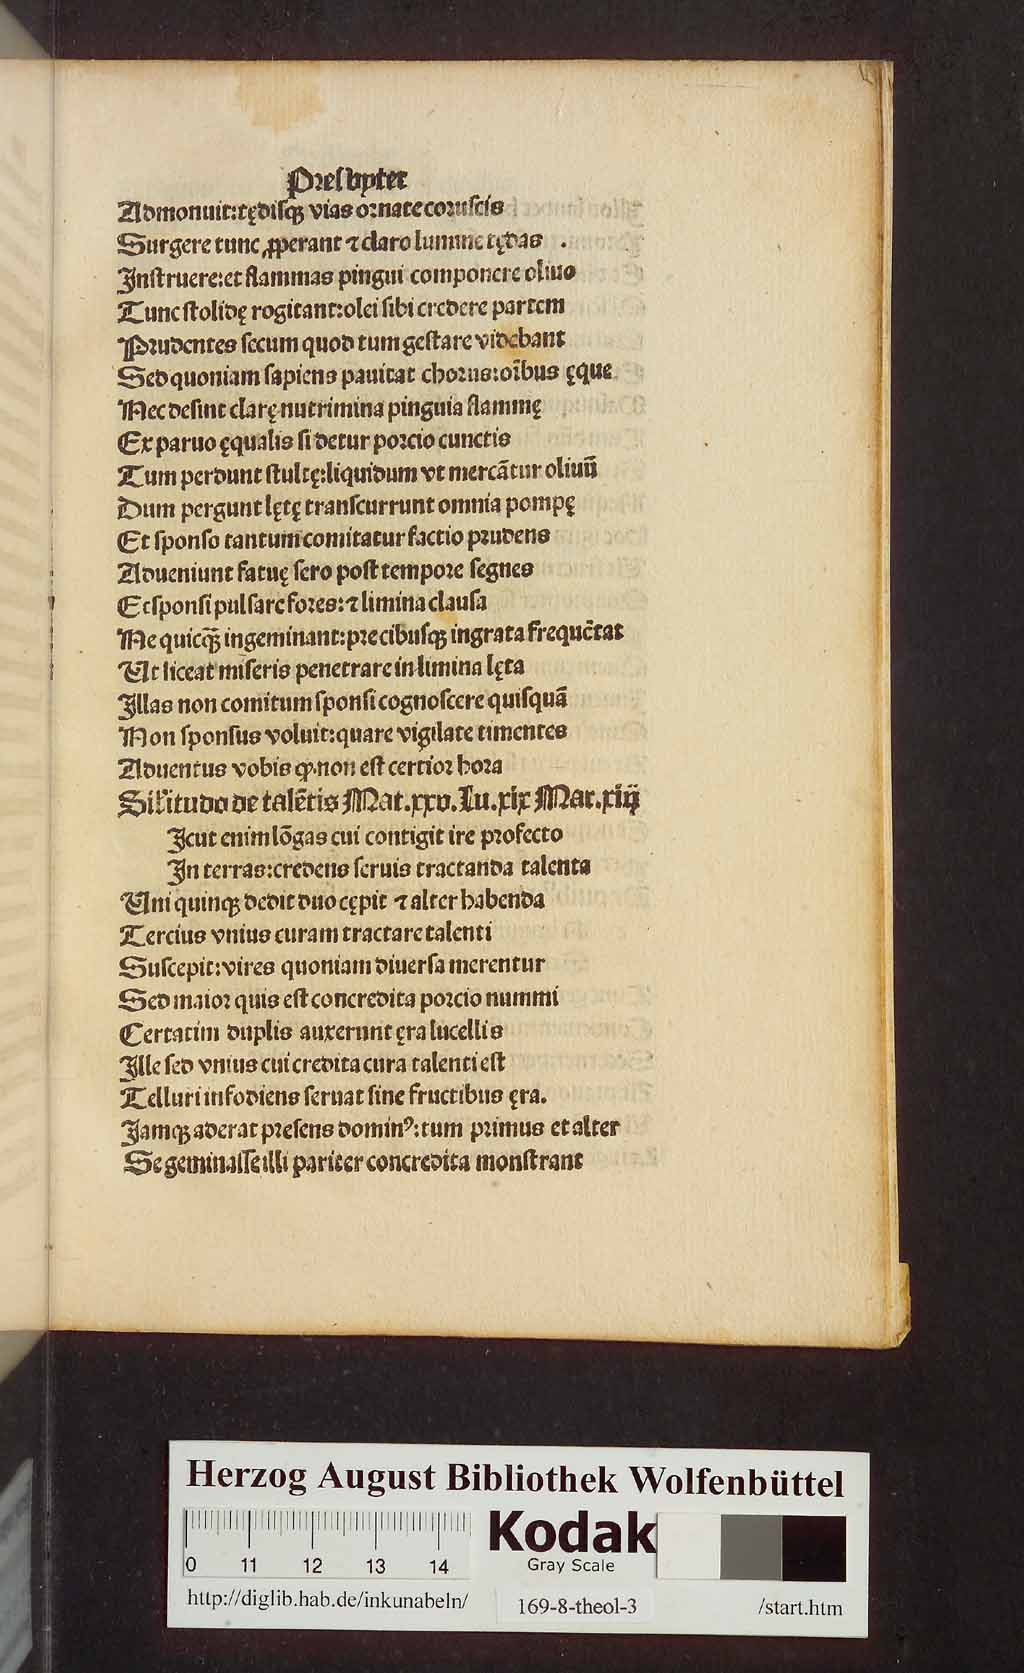 Presbyter
Admonuit:tędisqꝫ vias ornate coruscis
Surgere tunc ꝓperant ⁊ claro lumine tędas .
Instruere:et flammas pingui componere oliuo
Tunc stolidę rogitant:olei sibi credere partem
Prudentes secum quod tum gestare videbant
Sed quoniam sapiens pauitat chorus:oı̃bus ęque
Nec desint clarę nutrimina pinguia flammę
Ex paruo ęqualis si detur porcio cunctis
Tum perdunt stultę:liquidum vt mercãtur oliuũ
Dum pergunt lętę transcurrunt omnia pompę
Et sponso tantum comitatur factio prudens
Adueniunt fatuę sero post tempore segnes
Et sponsi pulsare fores:⁊ limina clausa
Ne quicqꝫ̃ ingeminant:precibusqꝫ ingrata frequẽtat
Ut liceat miseris penetrare in limina lęta
Illas non comitum sponsi cognoscere quisquã
Non sponsus voluit:quare vigilate timentes
Aduentus vobis ꝙ non est certior hora
Sil'itudo de talẽtis Mat.xxv.Lu.xix Mar.xiij
Icut enim lõgas cui contigit ire profecto
In terras:credens seruis tractanda talenta
Uni quinqꝫ dedit duo cępit ⁊ alter habenda
Tercius vnius curam tractare talenti
Suscepit:vires quoniam diuersa merentur
Sed maior quis est concredita porcio nummi
Certatim duplis auxerunt ęra lucellis
Ille sed vnius cui credita cura talenti est
Telluri infodiens seruat sine fructibus ęra.
Jamqꝫ aderat presens dominꝰ:tum primus et alter
Se geminasse illi pariter concredita monstrant
Herzog August Bibliothek Wolfenbüttel
0 11 12 13 14
Kodak
Gray Scale
http://diglib.hab.de/inkunabeln/
169-8-theol-3
/start.htm